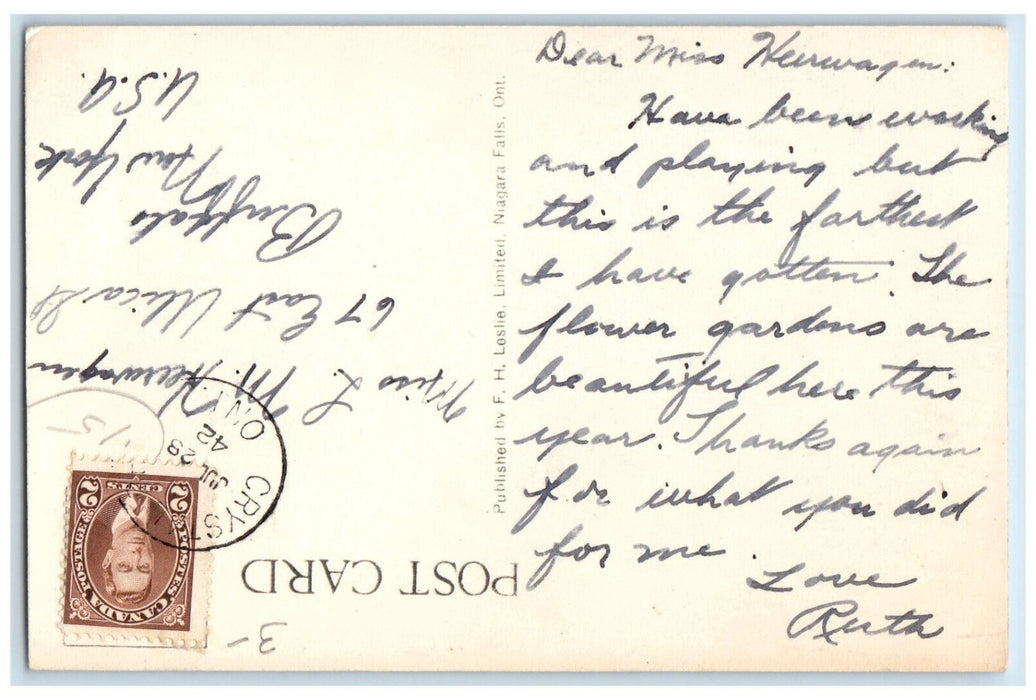 Dear Miss Heerwagen:
Have been working
and playing but
this is the farthest
I have gotten. The
flower gardens are
beautiful here this
year. Thanks again
for what you did
for me.
Love
Ruth
Published by F. H. Leslie, Limited, Niagara Falls, Ont.
POST CARD
Miss L. M. Heerwagen
67 East Utica St
Buffalo
New York
U.S.A.
CRYS
JUL 28
42
ONT
POSTES POSTAGE
CANADA
2 CENTS 2
15
3-